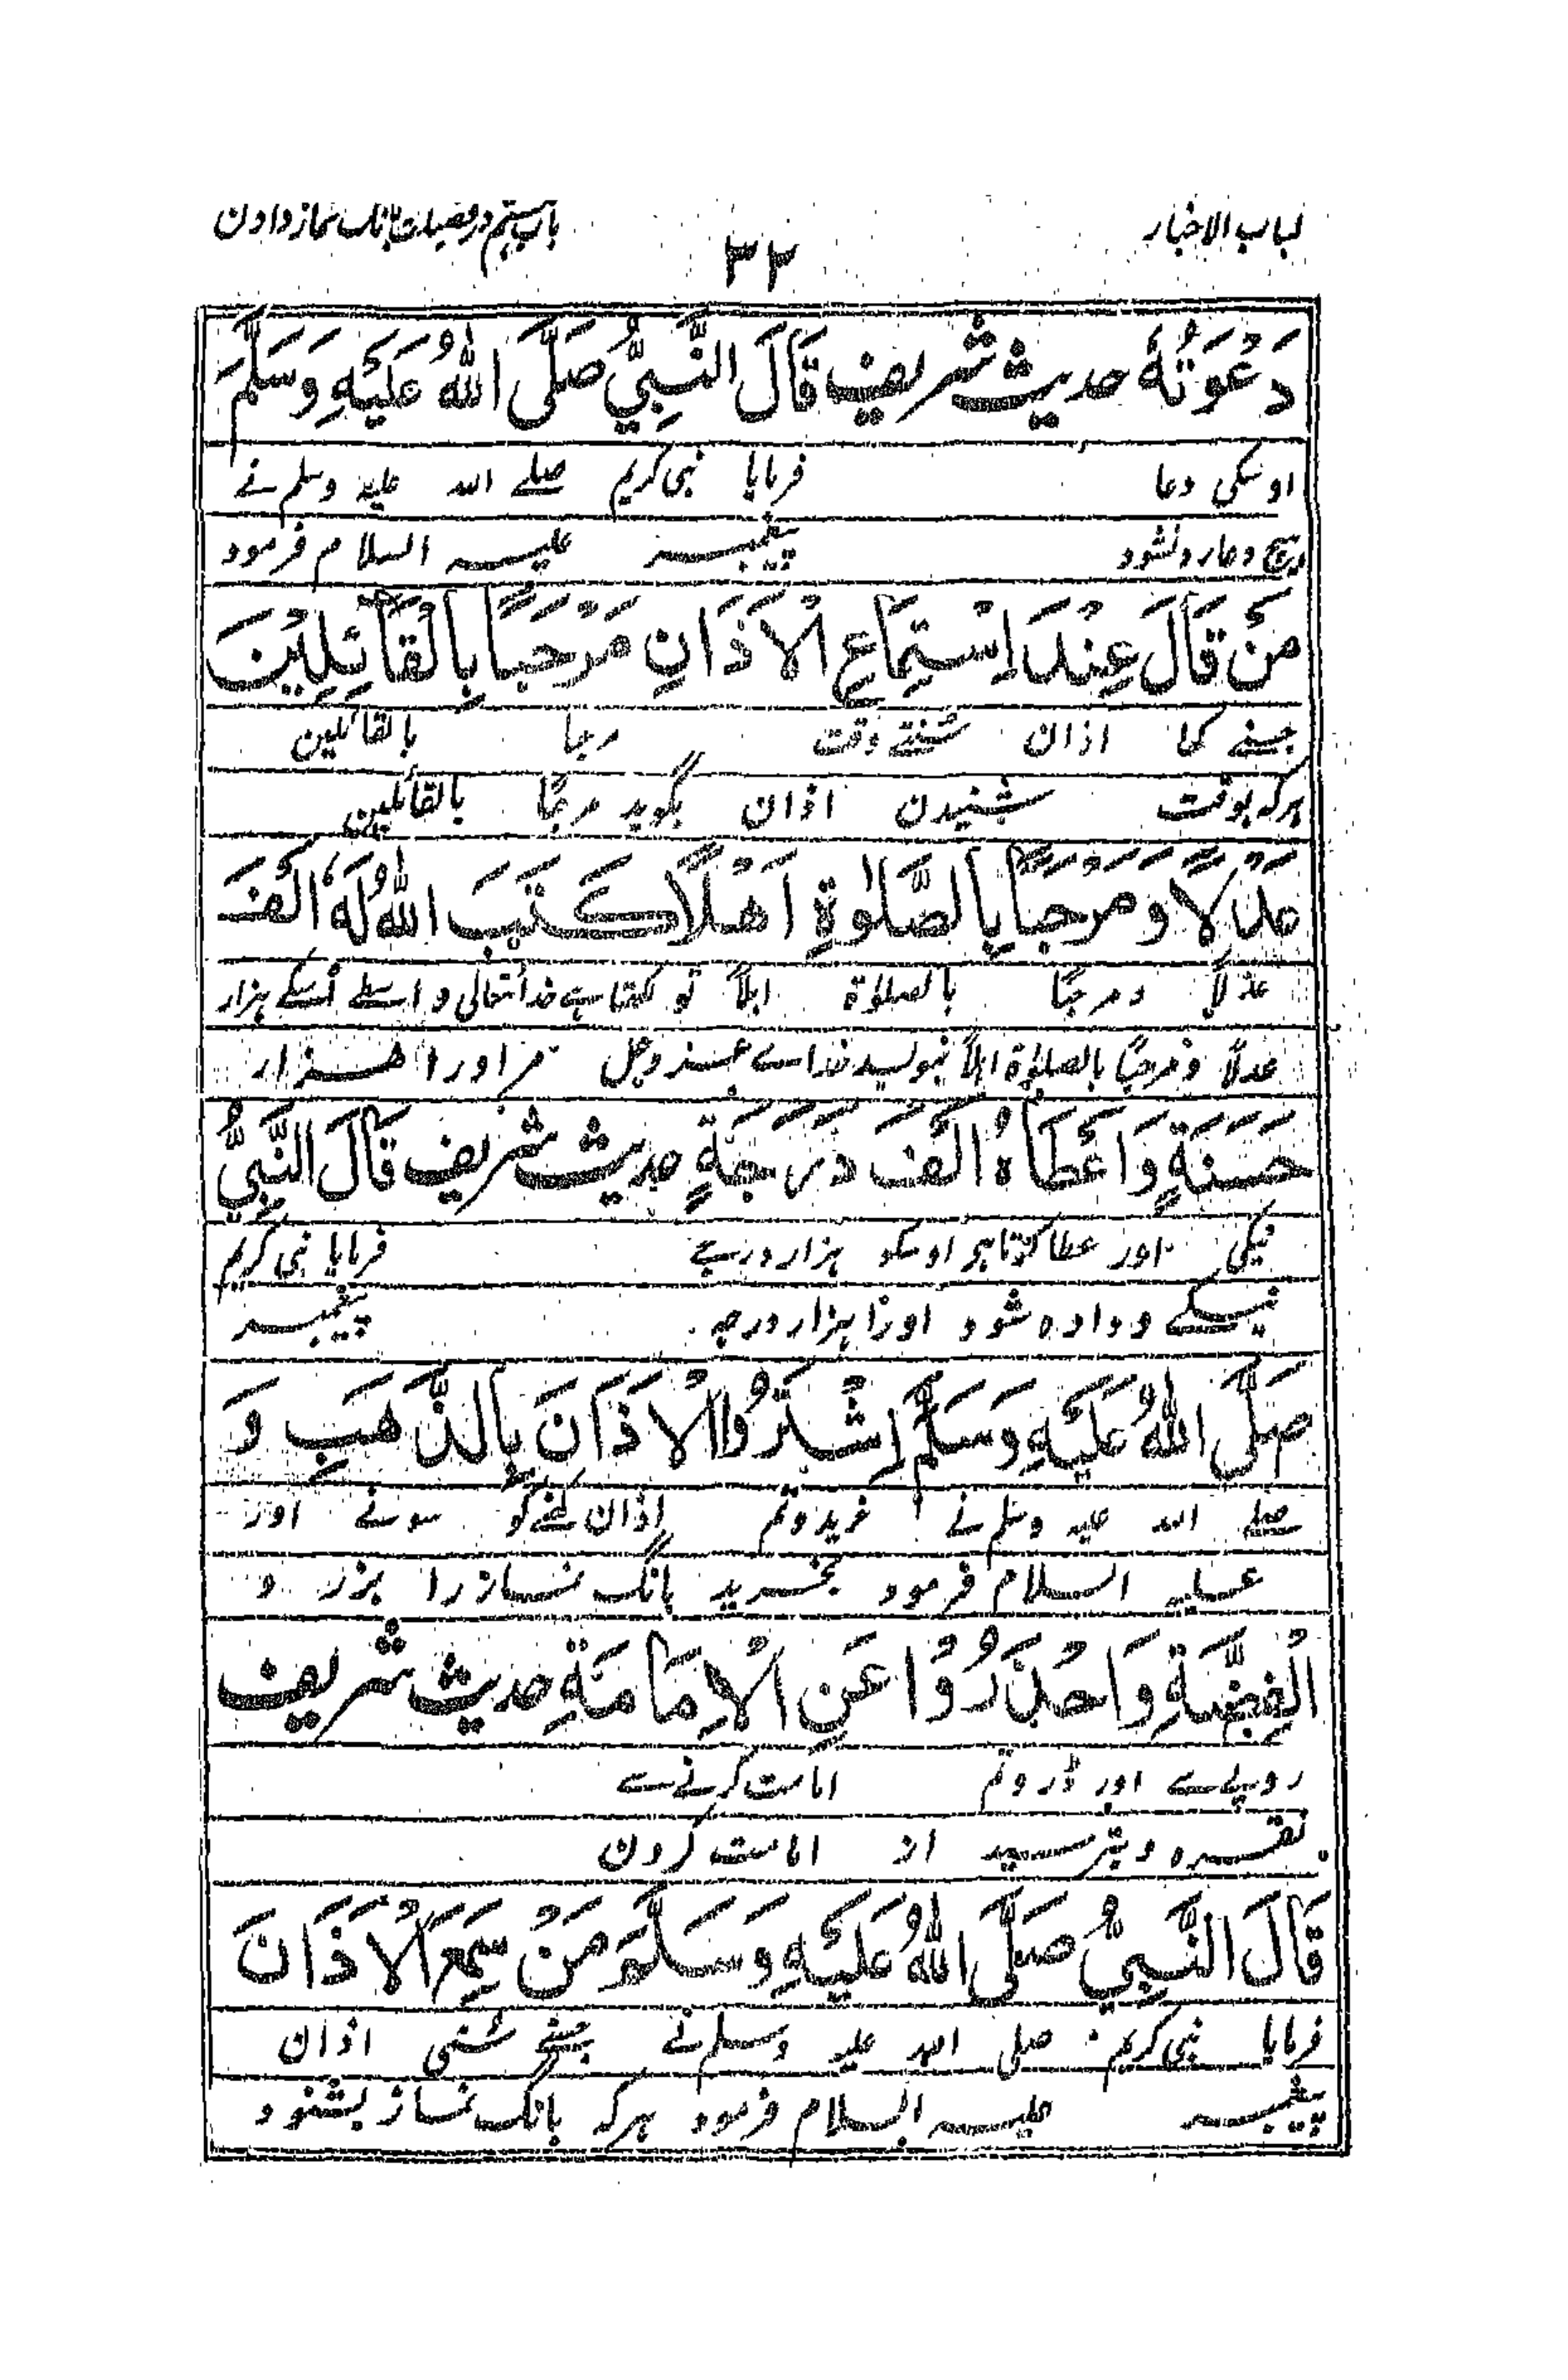 لباب الاخبار
۳۲
باب ہشتم در فضیلت بانگ نماز دادن
دَعْوَتُهُ حدیث شریف قَالَ النَّبِيُّ صَلَّى اللهُ عَلَيْهِ وَسَلَّمَ
اوسکی دعا فرمایا نبی کریم صلے اللہ علیہ وسلم نے
ہیچ دعا رد نشود پیغمبر علیہ السلام فرمود
مَنْ قَالَ عِنْدَ اِسْتِمَاعِ الْاَذَانِ مَرْحَبًا بِالْقَائِلِيْنَ
جسنے کہا اذان سُنتے وقت مرحبا بالقائلین
ہرکہ بوقت شنیدن اذان بگوید مرحبًا بالقائلین
عَدْلًا وَمَرْحَبًا بِالصَّلٰوةِ اَهْلًا كَتَبَ اللهُ لَهٗ اَلْفَ
عدلًا ومرحبًا بالصلوٰة اہلًا تو لکھتا ہے خداتعالی واسطے اُسکے ہزار
عدلًا ومرحبًا بالصلوٰة اہلًا بنویسد خداے عزوجل مر اورا ہزار
حَسَنَةٍ وَاَعْطَاهُ اَلْفَ دَرَجَةٍ حدیث شریف قَالَ النَّبِيُّ
نیکی اور عطا کرتا ہر اوسکو ہزار درجے فرمایا نبی کریم
نیکے و داده شود اورا ہزار درجہ پیغمبر
صَلَّى اللهُ عَلَيْهِ وَسَلَّمَ اِشْتَرُوا الْاَذَانَ بِالذَّهَبِ وَ
صلے اللہ علیہ وسلم نے خریدو تم اذان کہنے کو سونے اور
علیہ السلام فرمود بخرید بانگ نماز را بزر و
الْفِضَّةِ وَاحْذَرُوْا عَنِ الْاِمَامَةِ حدیث شریف
روپے سے اور ڈرو تم امامت کرنے سے
نقره وبترسید از امامت کردن
قَالَ النَّبِيُّ صَلَّى اللهُ عَلَيْهِ وَسَلَّمَ مَنْ سَمِعَ الْاَذَانَ
فرمایا نبی کریم صلی اللہ علیہ وسلم نے جسنے سُنی اذان
پیغمبر علیہ السلام فرمود ہرکہ بانگ نماز بشنود